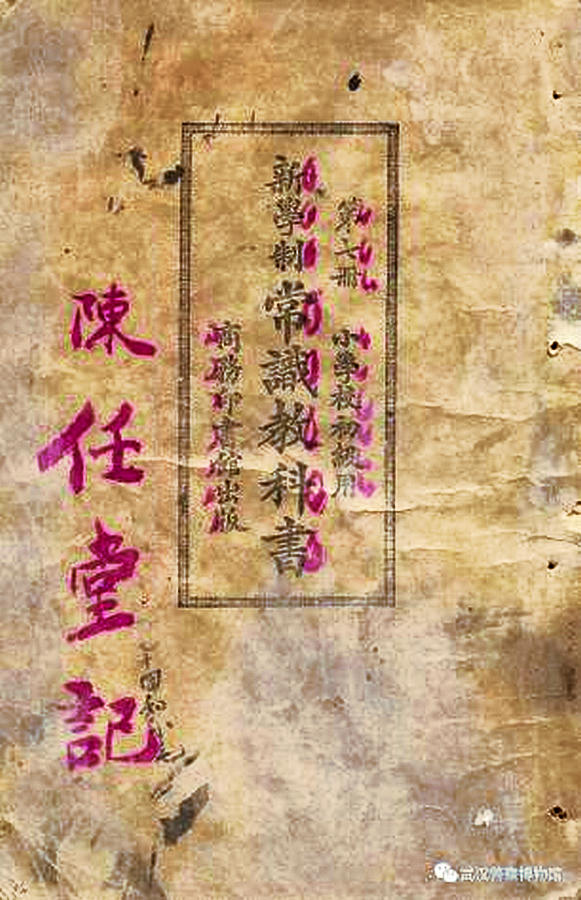 第六册 小學校初級用
新學制常識教科書
商務印書館出版
陳任堂記
武汉警察博物馆